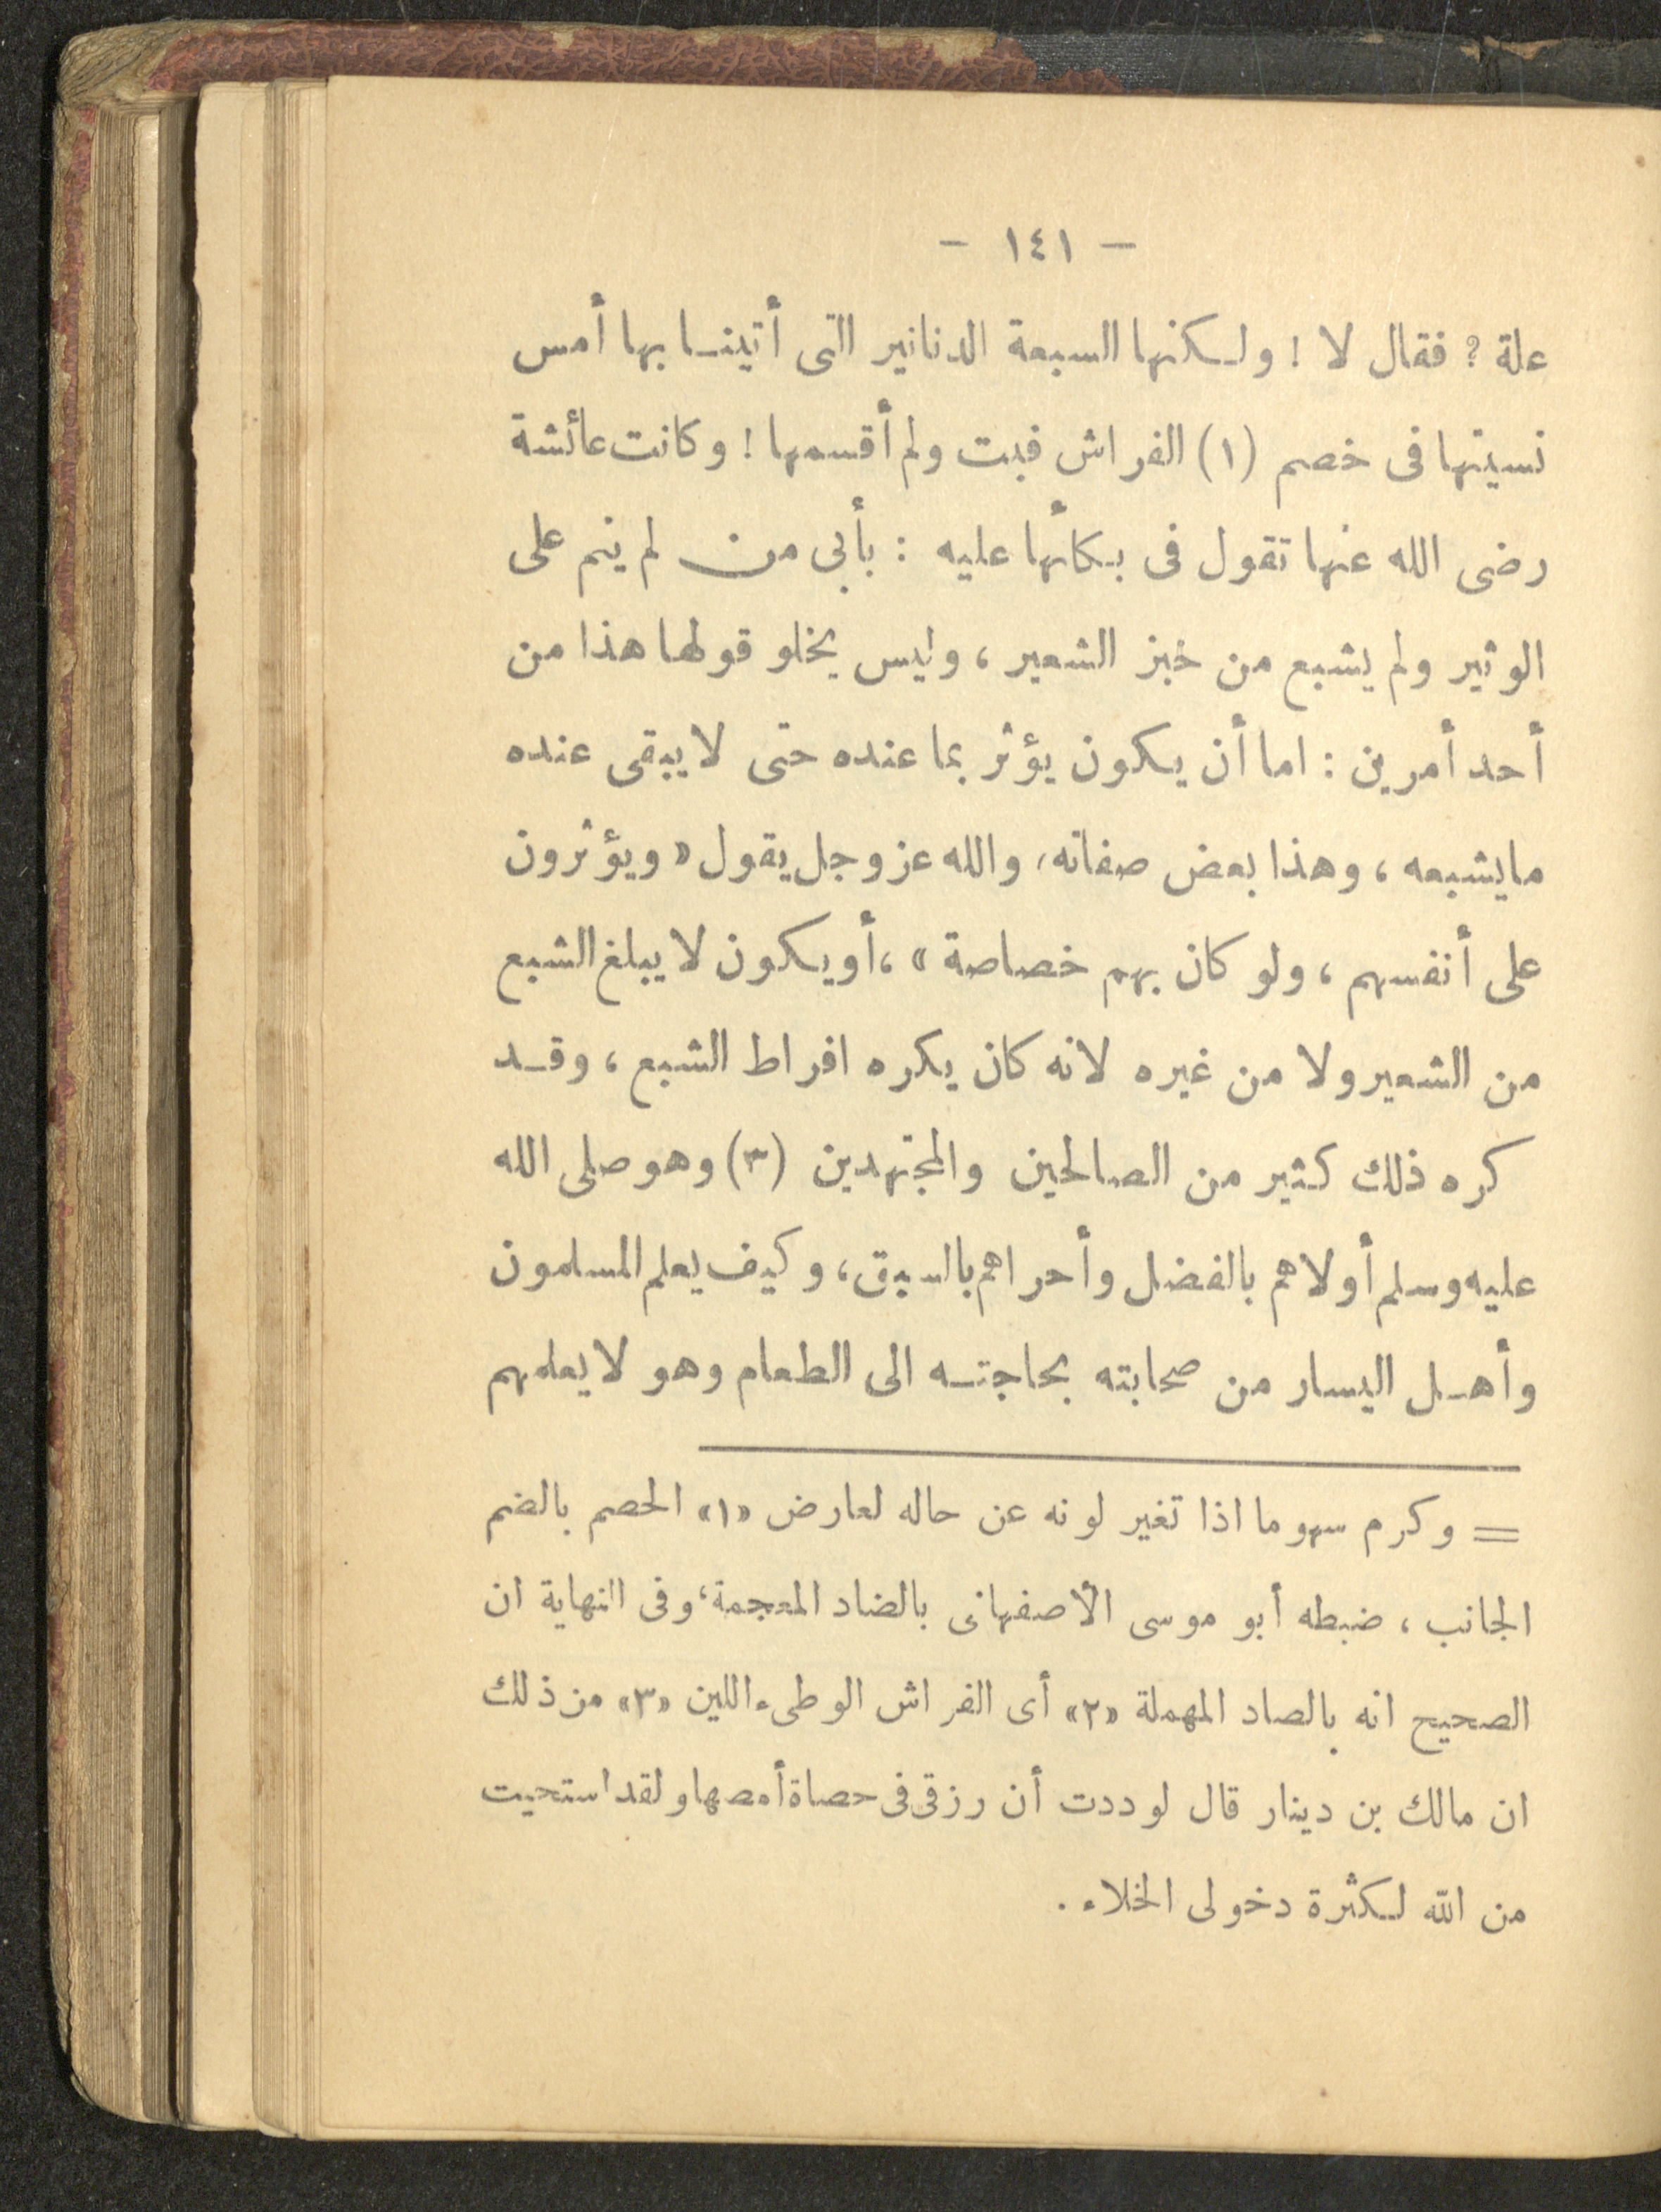 — ١٤١ —
علة ? فقال لا ! ولكنها السبعة الدنانير التى أتينا بها أمس
نسيتها فى خصم (١) الفراش فبت ولم أقسمها ! وكانت عائشة
رضى الله عنها تقول فى بكأئها عليه : بأبى من لم ينم على
الوثير ولم يشبع من خبز الشعير ، وليس يخلو قولها هذا من
أحد أمرين : اما أن يكون يؤثر بما عنده حتى لا يبقى عنده
مايشبعه ، وهذا بعض صفاته، والله عز وجل يقول « ويؤثرون
على أنفسهم ، ولو كان بهم خصاصة » ،أو يكون لا يبلغ الشبع
من الشعير ولا من غيره لانه كان يكره افراط الشبع ، وقد
كره ذلك كثير من الصالحين والمجتهدين (٣) وهو صلى الله
عليه وسلم أولاهم بالفضل وأحراهم بالسبق ، وكيف يعلم المسلمون
وأهل اليسار من صحابته بحاجته الى الطعام وهو لا يعلمهم
= وكرم سهوما اذا تغير لونه عن حاله لعارض «١» الخصم بالضم
الجانب ، ضبطه أبو موسى الأصفهانى بالضاد المعجمة، وفى النهاية ان
الصحيح انه بالصاد المهملة «٢» أى الفراش الوطىء اللين «٣» من ذلك
ان مالك بن دينار قال لوددت أن رزقى فى حصاة أمصها ولقد استحيت
من الله لكثرة دخولى الخلاء .